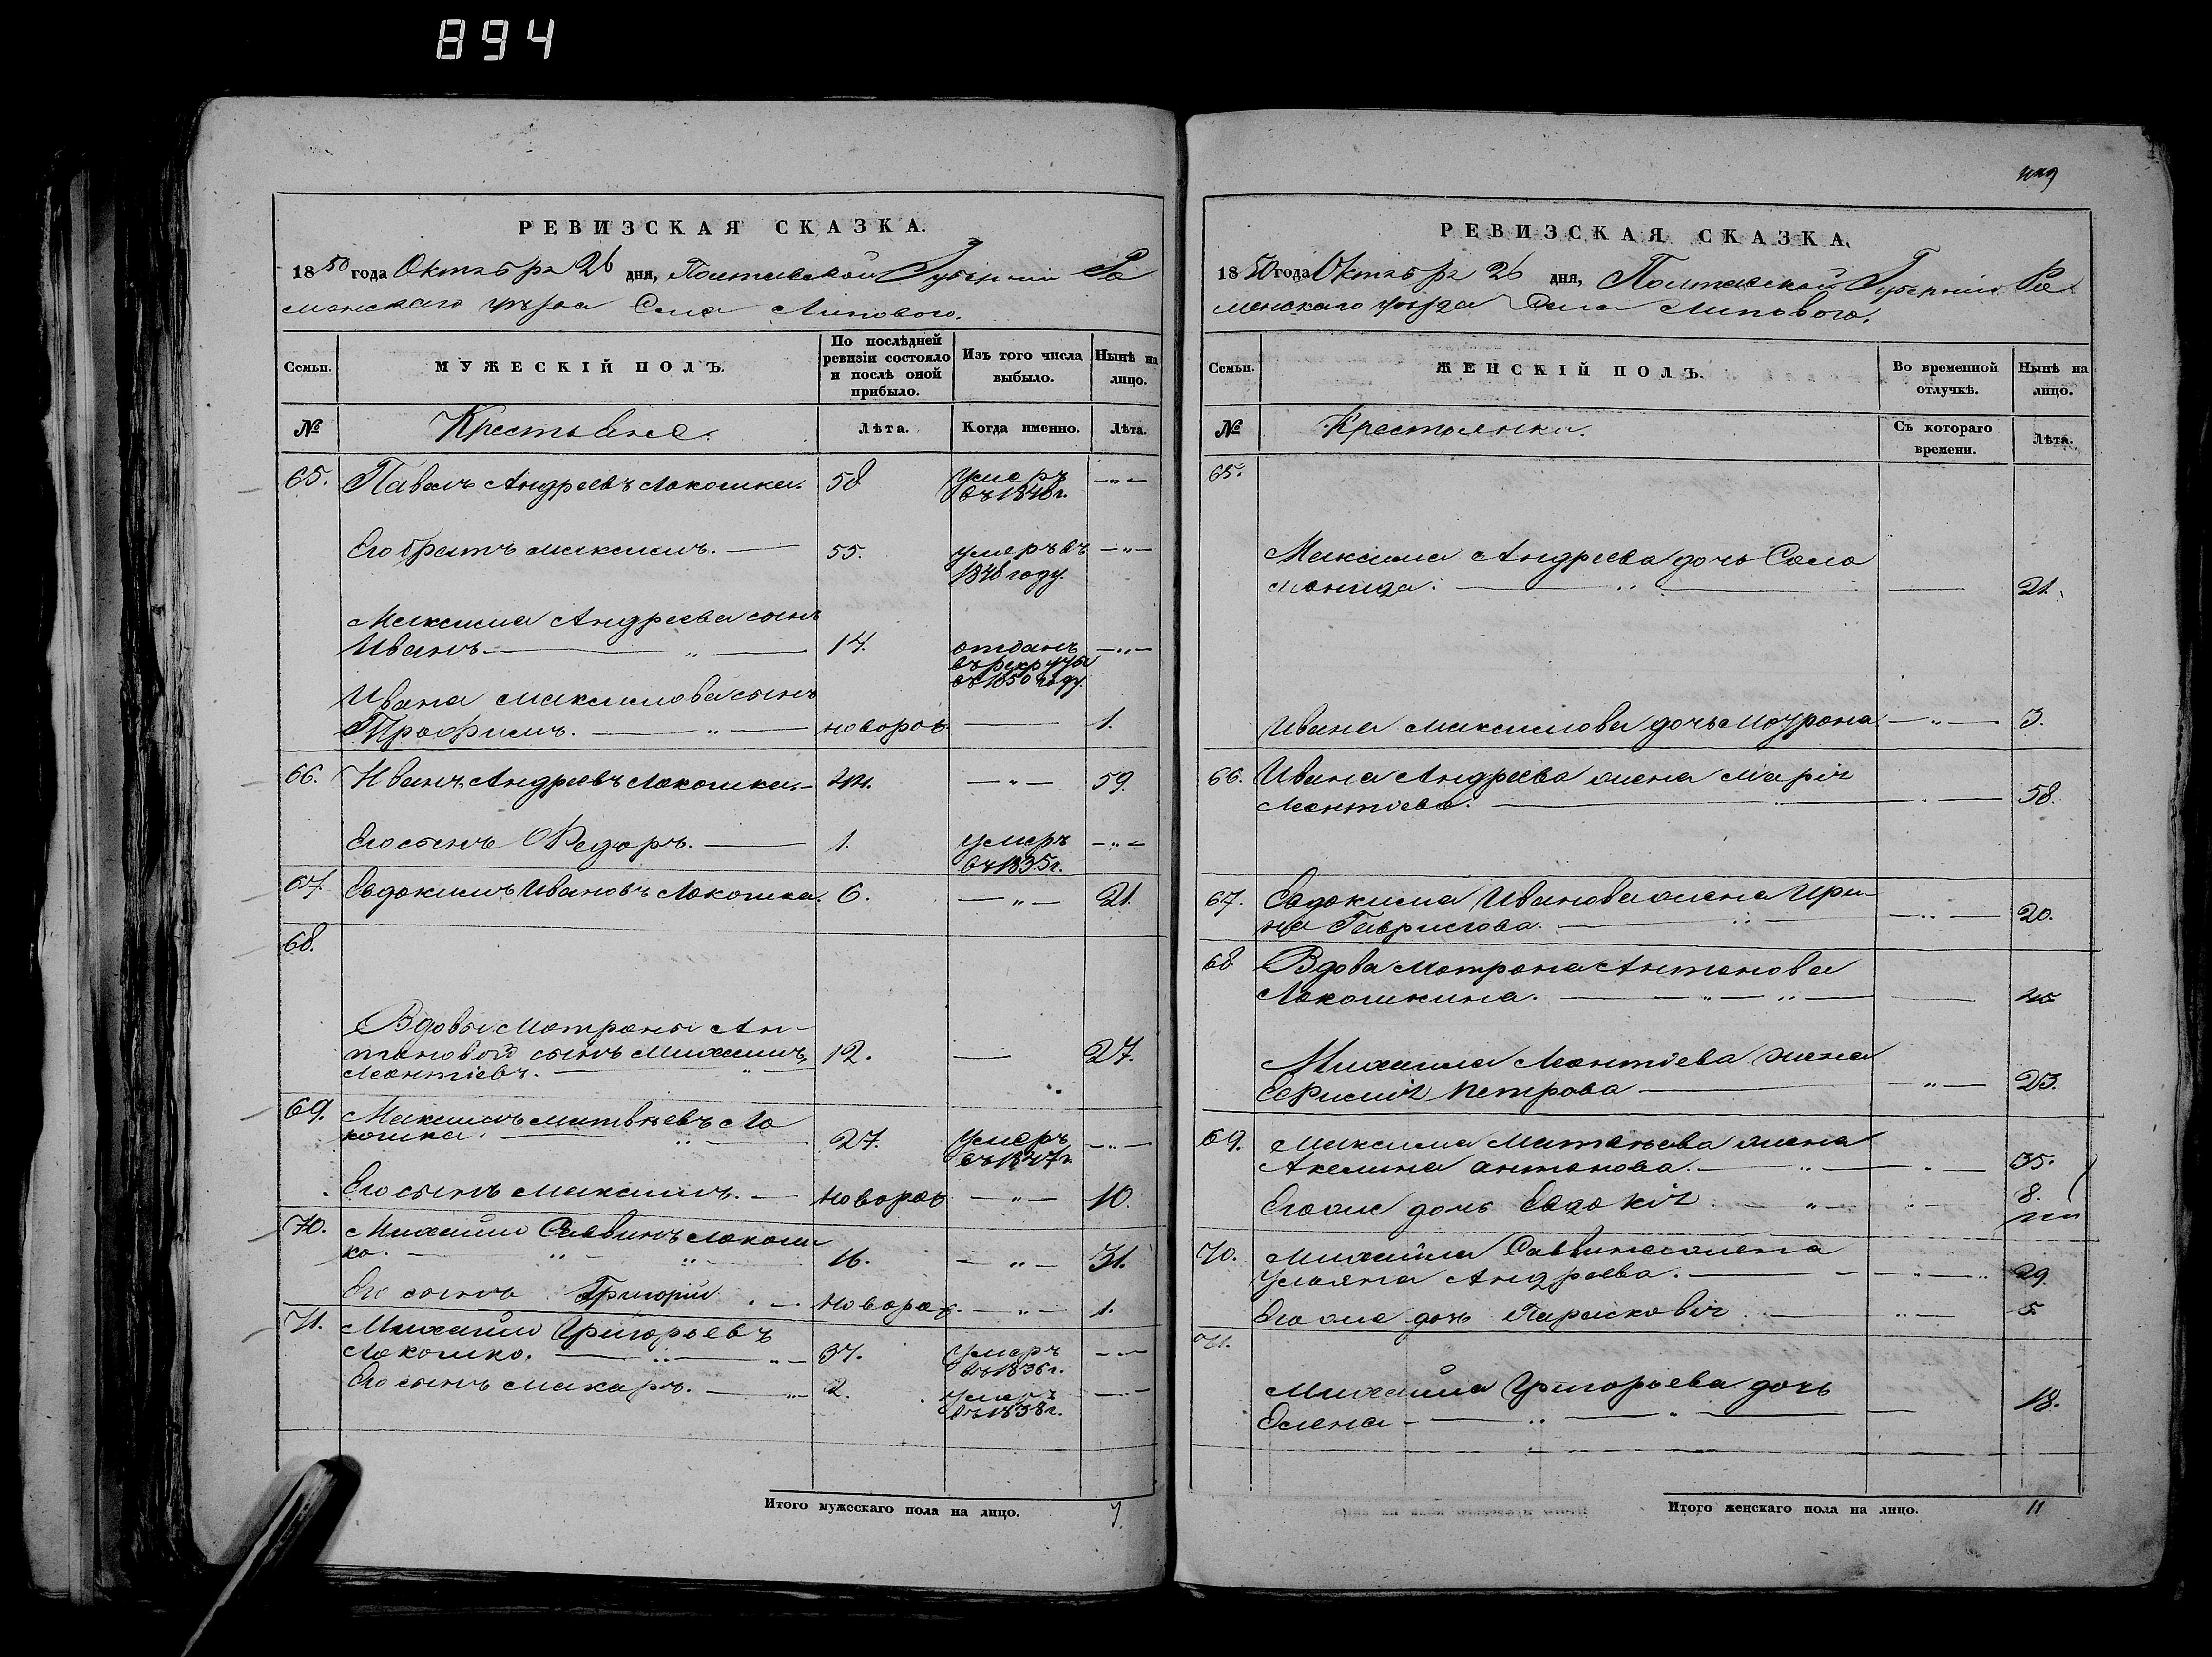 894
РЕВИЗСКАЯ СКАЗКА.
1850 года Октября 26 дня, Полтавской Губернии Ро
менскаго уезда Села Липового.
Семьи.
МУЖЕСКІЙ ПОЛЪ.
По послѣдней ревизіи состояло и послѣ оной прибыло.
Изъ того числа выбыло.
Нынѣ на лицо.
№
Крестьяне.
Лѣта.
Когда именно.
Лѣта.
65. Павелъ Андреевъ Локошка. 58 умеръ —"—
въ 1848 г.
Его братъ Максимъ. — 55. умеръ въ —"—
1848 году.
Максима Андреева сынъ
Иванъ — " — 14. отданъ —"—
въ рекруты
въ 1850 году.
Ивана Максимова сынъ
Трофимъ. — " — новорож — 1.
66. Иванъ Андреевъ Локошка. — 44. —"— 59.
Его сынъ Федоръ. — 1. умеръ —"—
въ 1835 г.
67. Евдокимъ Ивановъ Локошка. 6. —"— 21.
68.
Вдовы Мотроны Ан-
тоновой сынъ Михаилъ 12. — 27.
Леонтіевъ. — " —
69. Максимъ Матвѣевъ Ло
кошка. — " — 27. Умеръ —"—
въ 1847 г.
Его сынъ Максимъ. — новорож —"— 10.
70. Михайло Саввинъ Локош
ко. — " — " — 16. —"— 31.
Его сынъ Григорій. — новорож. —"— 1.
71. Михайло Григорьевъ
Локошко. — " — " — 37. Умеръ —"—
въ 1836 г.
Его сынъ Макаръ. — " — 2. Умеръ —"—
въ 1838 г.
Итого мужескаго пола на лицо. 7.
РЕВИЗСКАЯ СКАЗКА.
1850 года Октября 26 дня, Полтавской Губерніи Ро
менскаго уѣзда Села Липового.
Семьи.
ЖЕНСКІЙ ПОЛЪ.
Во временной отлучкѣ.
Нынѣ на лицо.
№
Крестьянки.
Съ котораго времени.
Лѣта.
65.
Максима Андреева дочь Соло
монида. — " — — 21.
Ивана Максимова дочь Мотрона —"— 3.
66. Ивана Андреева жена Марія
Леонтіева. — " — 58.
67. Евдокима Иванова жена Ири-
на Гаврилова. — " — —"— 20.
68 Вдова Мотрона Антонова
Локошкина. — " — " — —
Михаила Леонтіева жена
Ефимія Петрова — " — 23.
69. Максима Матвѣева жена
Акелина Антонова. — " — 35.
Его же дочь Евдокія — " — 8.
70. Михайла Саввина жена
Ульяна Андреева. — " — 29.
Его же дочь Парасковія. — " — 5.
71.
Михайла Григорьева дочь
Елена — " — " — — 18.
Итого женскаго пола на лицо. 11